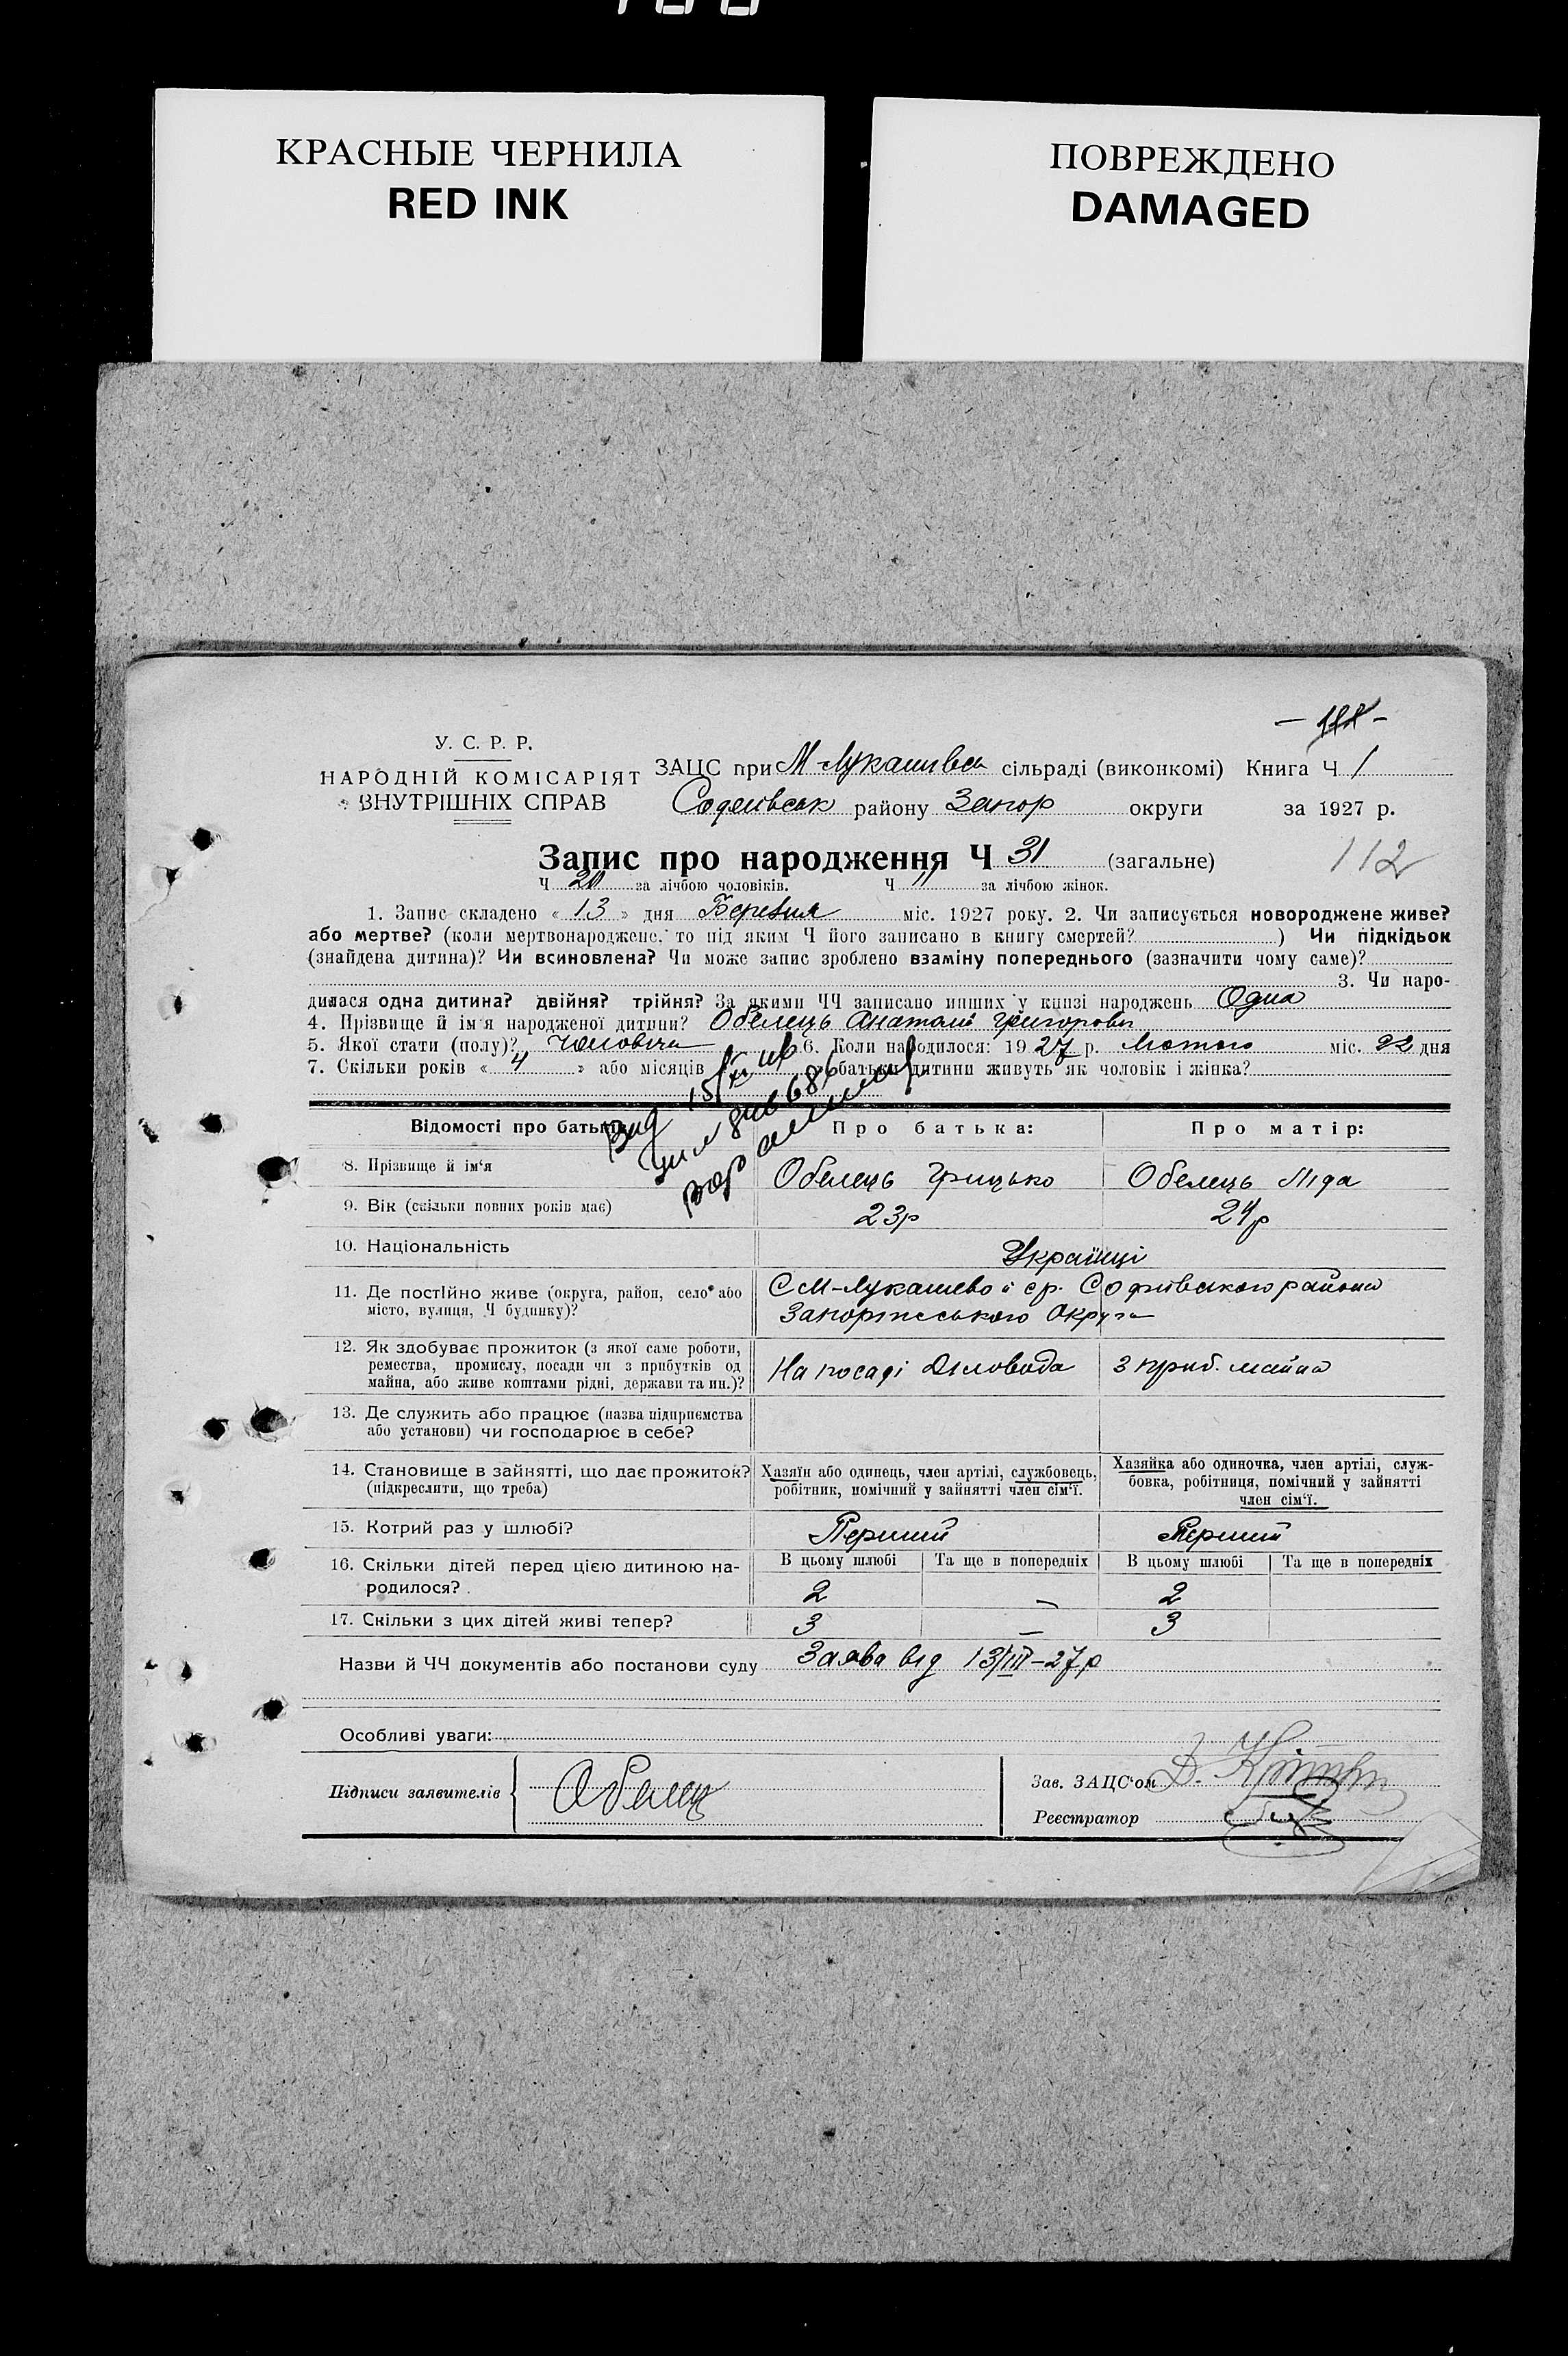 КРАСНЫЕ ЧЕРНИЛА
RED INK
ПОВРЕЖДЕНО
DAMAGED
У. С. Р. Р.
НАРОДНІЙ КОМІСАРІЯТ
ВНУТРІШНІХ СПРАВ
ЗАЦС при М-Лукашівск сільраді (виконкомі) Книга Ч 1
Софиївськ району Запор округи за 1927 р.
Запис про народження Ч 31 (загальне) 112
Ч 20 за лічбою чоловіків. Ч 11 за лічбою жінок.
1. Запис складено « 13 » дня Березня міс. 1927 року. 2. Чи записується новороджене живе?
або мертве? (коли мертвонароджене, то під яким Ч його записано в книгу смертей? ) Чи підкідьок
(знайдена дитина)? Чи всиновлена? Чи може запис зроблено взаміну попереднього (зазначити чому саме)?
3. Чи наро-
дилася одна дитина? двійня? трійня? За якими ЧЧ записано инших у книзі народжень Одна
4. Прізвище й ім'я народженої дитини? Обелець Анатолій Григоров
5. Якої стати (полу)? Чоловіча 6. Коли народилося: 1927 р. Лютого міс. 22 дня
7. Скільки років « 4 » або місяців « » батьки дитини живуть як чоловік і жінка?
Вид 15
Відомості про батьків Про батька: Про матір:
8. Прізвище й ім'я Обелець Грицько Обелець Ліда
9. Вік (скільки повних років має) 23р 24р
10. Національність Українці
11. Де постійно живе (округа, район, село або місто, вулиця, Ч будинку)?
С М-Лукашево й ср. Софиївського району
Запоріжського Округа
12. Як здобуває прожиток (з якої саме роботи,
ремества, промислу, посади чи з прибутків од
майна, або живе коштами рідні, держави та ин.)?
На посаді Діловода З приб. майна
13. Де служить або працює (назва підприємства
або установи) чи господарює в себе?
14. Становище в зайнятті, що дає прожиток?
(підкреслити, що треба)
Хазяїн або одинець, член артілі, службовець,
робітник, помічний у зайнятті член сім'ї.
Хазяйка або одиночка, член артілі, служ-
бовка, робітниця, помічний у зайнятті
член сім'ї.
15. Котрий раз у шлюбі? Перший Перший
16. Скільки дітей перед цією дитиною на-
родилося?
В цьому шлюбі Та ще в попередніх В цьому шлюбі Та ще в попередніх
2 — 2
17. Скільки з цих дітей живі тепер? 3 — 3
Назви й ЧЧ документів або постанови суду Заява від 13/III-27р
Особливі уваги:
Підписи заявителів Обелец
Зав. ЗАЦС'ом
Реєстратор